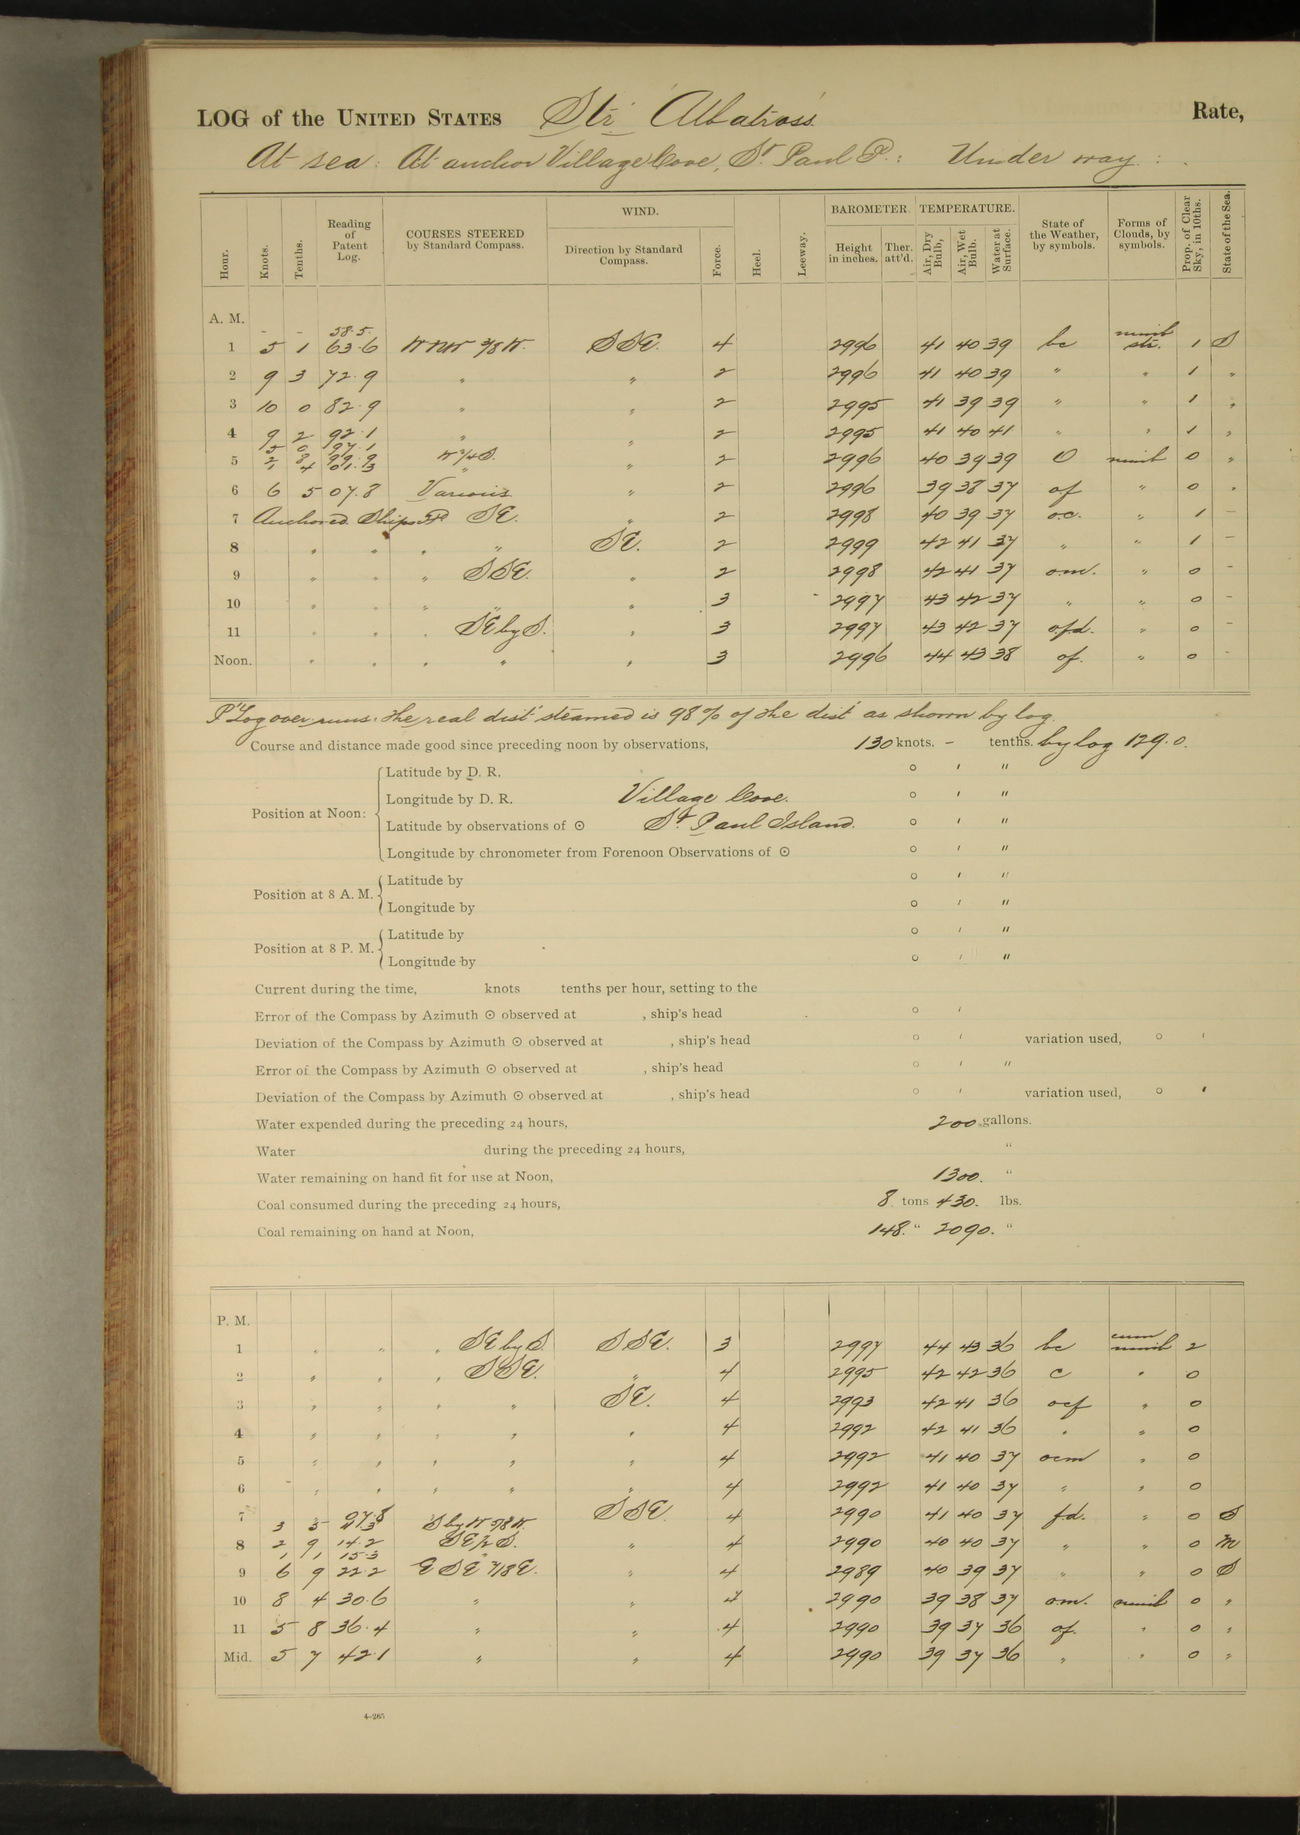 LOG of the UNITED STATES Str "Albatross" Rate,
At sea: At anchor Village Cove, St. Paul I.: Under way:
Hour. Knots. Tenths. Reading of Patent Log. COURSES STEERED by Standard Compass. WIND. Direction by Standard Compass. Force. Heel. Leeway. BAROMETER. Height in inches. Ther. att'd. TEMPERATURE. Air, Dry Bulb, Air, Wet Bulb. Water at Surface. State of the Weather, by symbols. Forms of Clouds, by symbols. Prop. of Clear Sky, in 10ths. State of the Sea.
A. M.
- - 58.5
1 5 1 63.6 WNW 3/8 W. SSE. 4 2996 41 40 39 bc nimb str. 1 S
2 9 3 72.9 " " 2 2996 41 40 39 " " 1 "
3 10 0 82.9 " " 2 2995 41 39 39 " " 1 "
4 9 2 92.1 " " 2 2995 41 40 41 " " 1 "
5 0 97.1
5 2 8 99.9 W 3/4 S. " 2 2996 40 39 39 O nimb 0 "
1 4 01.3 "
6 6 5 07.8 Various " 2 2996 39 38 37 of " 0 "
7 Anchored Ships Hd SE. " 2 2998 40 39 37 o.c. " 1 -
8 " " " " SE. 2 2999 42 41 37 " " 1 -
9 " " " SSE. " 2 2998 42 41 37 om. " 0 -
10 " " " " " 3 2997 43 42 37 " " 0 -
11 " " " SE by S. " 3 2997 43 42 37 ofd. " 0 -
Noon. " " " " " 3 2996 44 43 38 of. " 0 -
P. Log over runs: the real dist. steamed is 98% of the dist. as shown by log.
Course and distance made good since preceding noon by observations, 130 knots. - tenths. by log 129.0.
Position at Noon: Latitude by D. R. ° ′ ″
Longitude by D. R. Village Cove. ° ′ ″
Latitude by observations of ⊙ St. Paul Island. ° ′ ″
Longitude by chronometer from Forenoon Observations of ⊙ ° ′ ″
Position at 8 A. M. Latitude by ° ′ ″
Longitude by ° ′ ″
Position at 8 P. M. Latitude by ° ′ ″
Longitude by ° ′ ″
Current during the time, knots tenths per hour, setting to the
Error of the Compass by Azimuth ⊙ observed at , ship's head ° ′
Deviation of the Compass by Azimuth ⊙ observed at , ship's head ° ′ variation used, ° ′
Error of the Compass by Azimuth ⊙ observed at , ship's head ° ′ ″
Deviation of the Compass by Azimuth ⊙ observed at , ship's head ° ′ variation used, ° ′
Water expended during the preceding 24 hours, 200 gallons.
Water during the preceding 24 hours, "
Water remaining on hand fit for use at Noon, 1300. "
Coal consumed during the preceding 24 hours, 8 tons 430. lbs.
Coal remaining on hand at Noon, 148. " 2090. "
P. M.
1 " " " SE by S. SSE. 3 2997 44 43 36 bc cum nimb 2
2 " " " SSE. " 4 2995 42 42 36 c " 0
3 " " " " SE. 4 2993 42 41 36 ocf " 0
4 " " " " " 4 2992 42 41 36 " " 0
5 " " " " " 4 2992 41 40 37 ocm " 0
6 " " " " " 4 2992 41 40 37 " " 0
07.8
7 3 5 11.3 S by W 5/8 W. SSE 4 2990 41 40 37 fd. " 0 S
8 2 9 14.2 SE 1/2 S. " 4 2990 40 40 37 " " 0 M
1 1 15.3 "
9 6 9 22.2 ESE 7/8 E. " 4 2989 40 39 37 " " 0 S
10 8 4 30.6 " " 4 2990 39 38 37 om. nimb 0 "
11 5 8 36.4 " " 4 2990 39 37 36 of. " 0 "
Mid. 5 7 42.1 " " 4 2990 39 37 36 " " 0 "
4-265